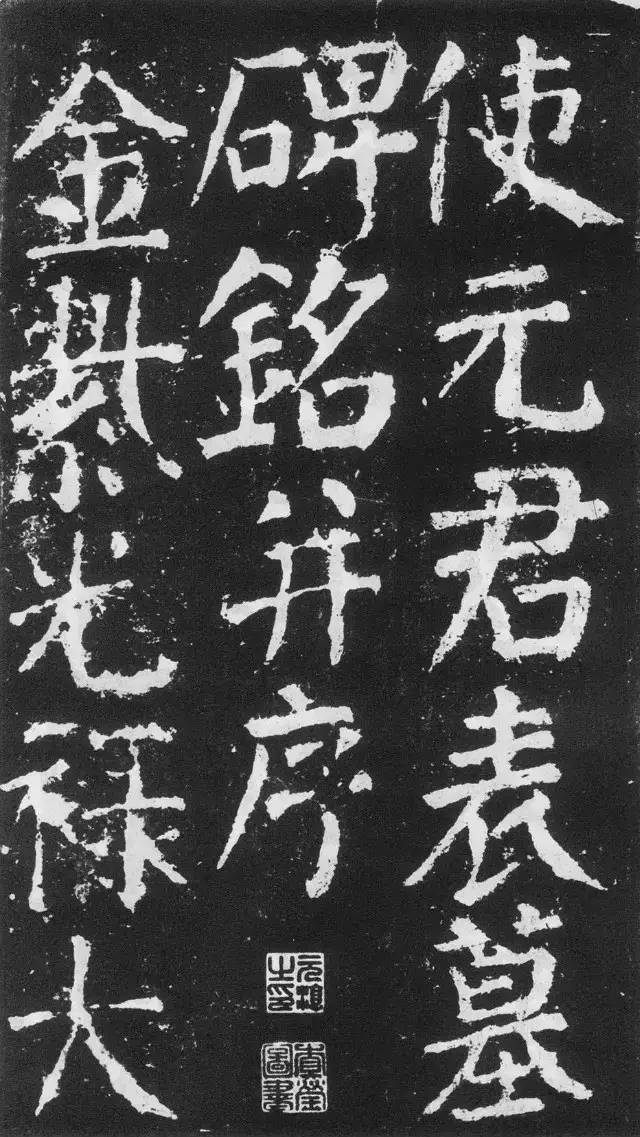 使元君表墓
碑銘并序
金紫光祿大